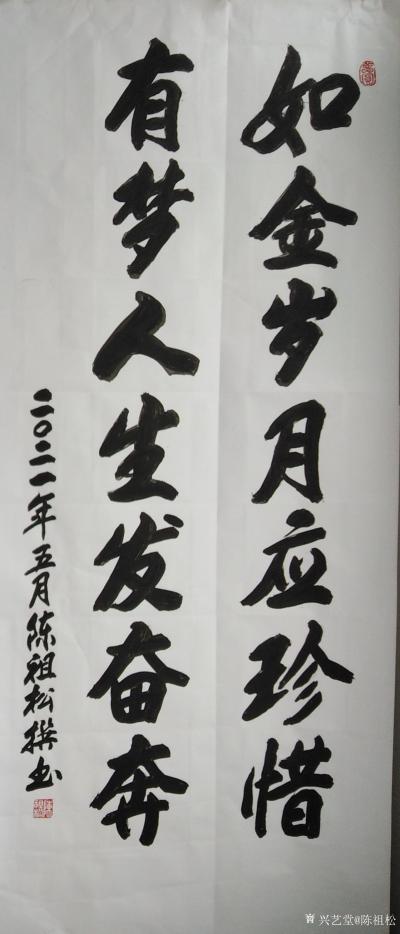 如金岁月应珍惜
有梦人生发奋奔
二〇二一年五月陈祖松撰书
兴艺堂@陈祖松